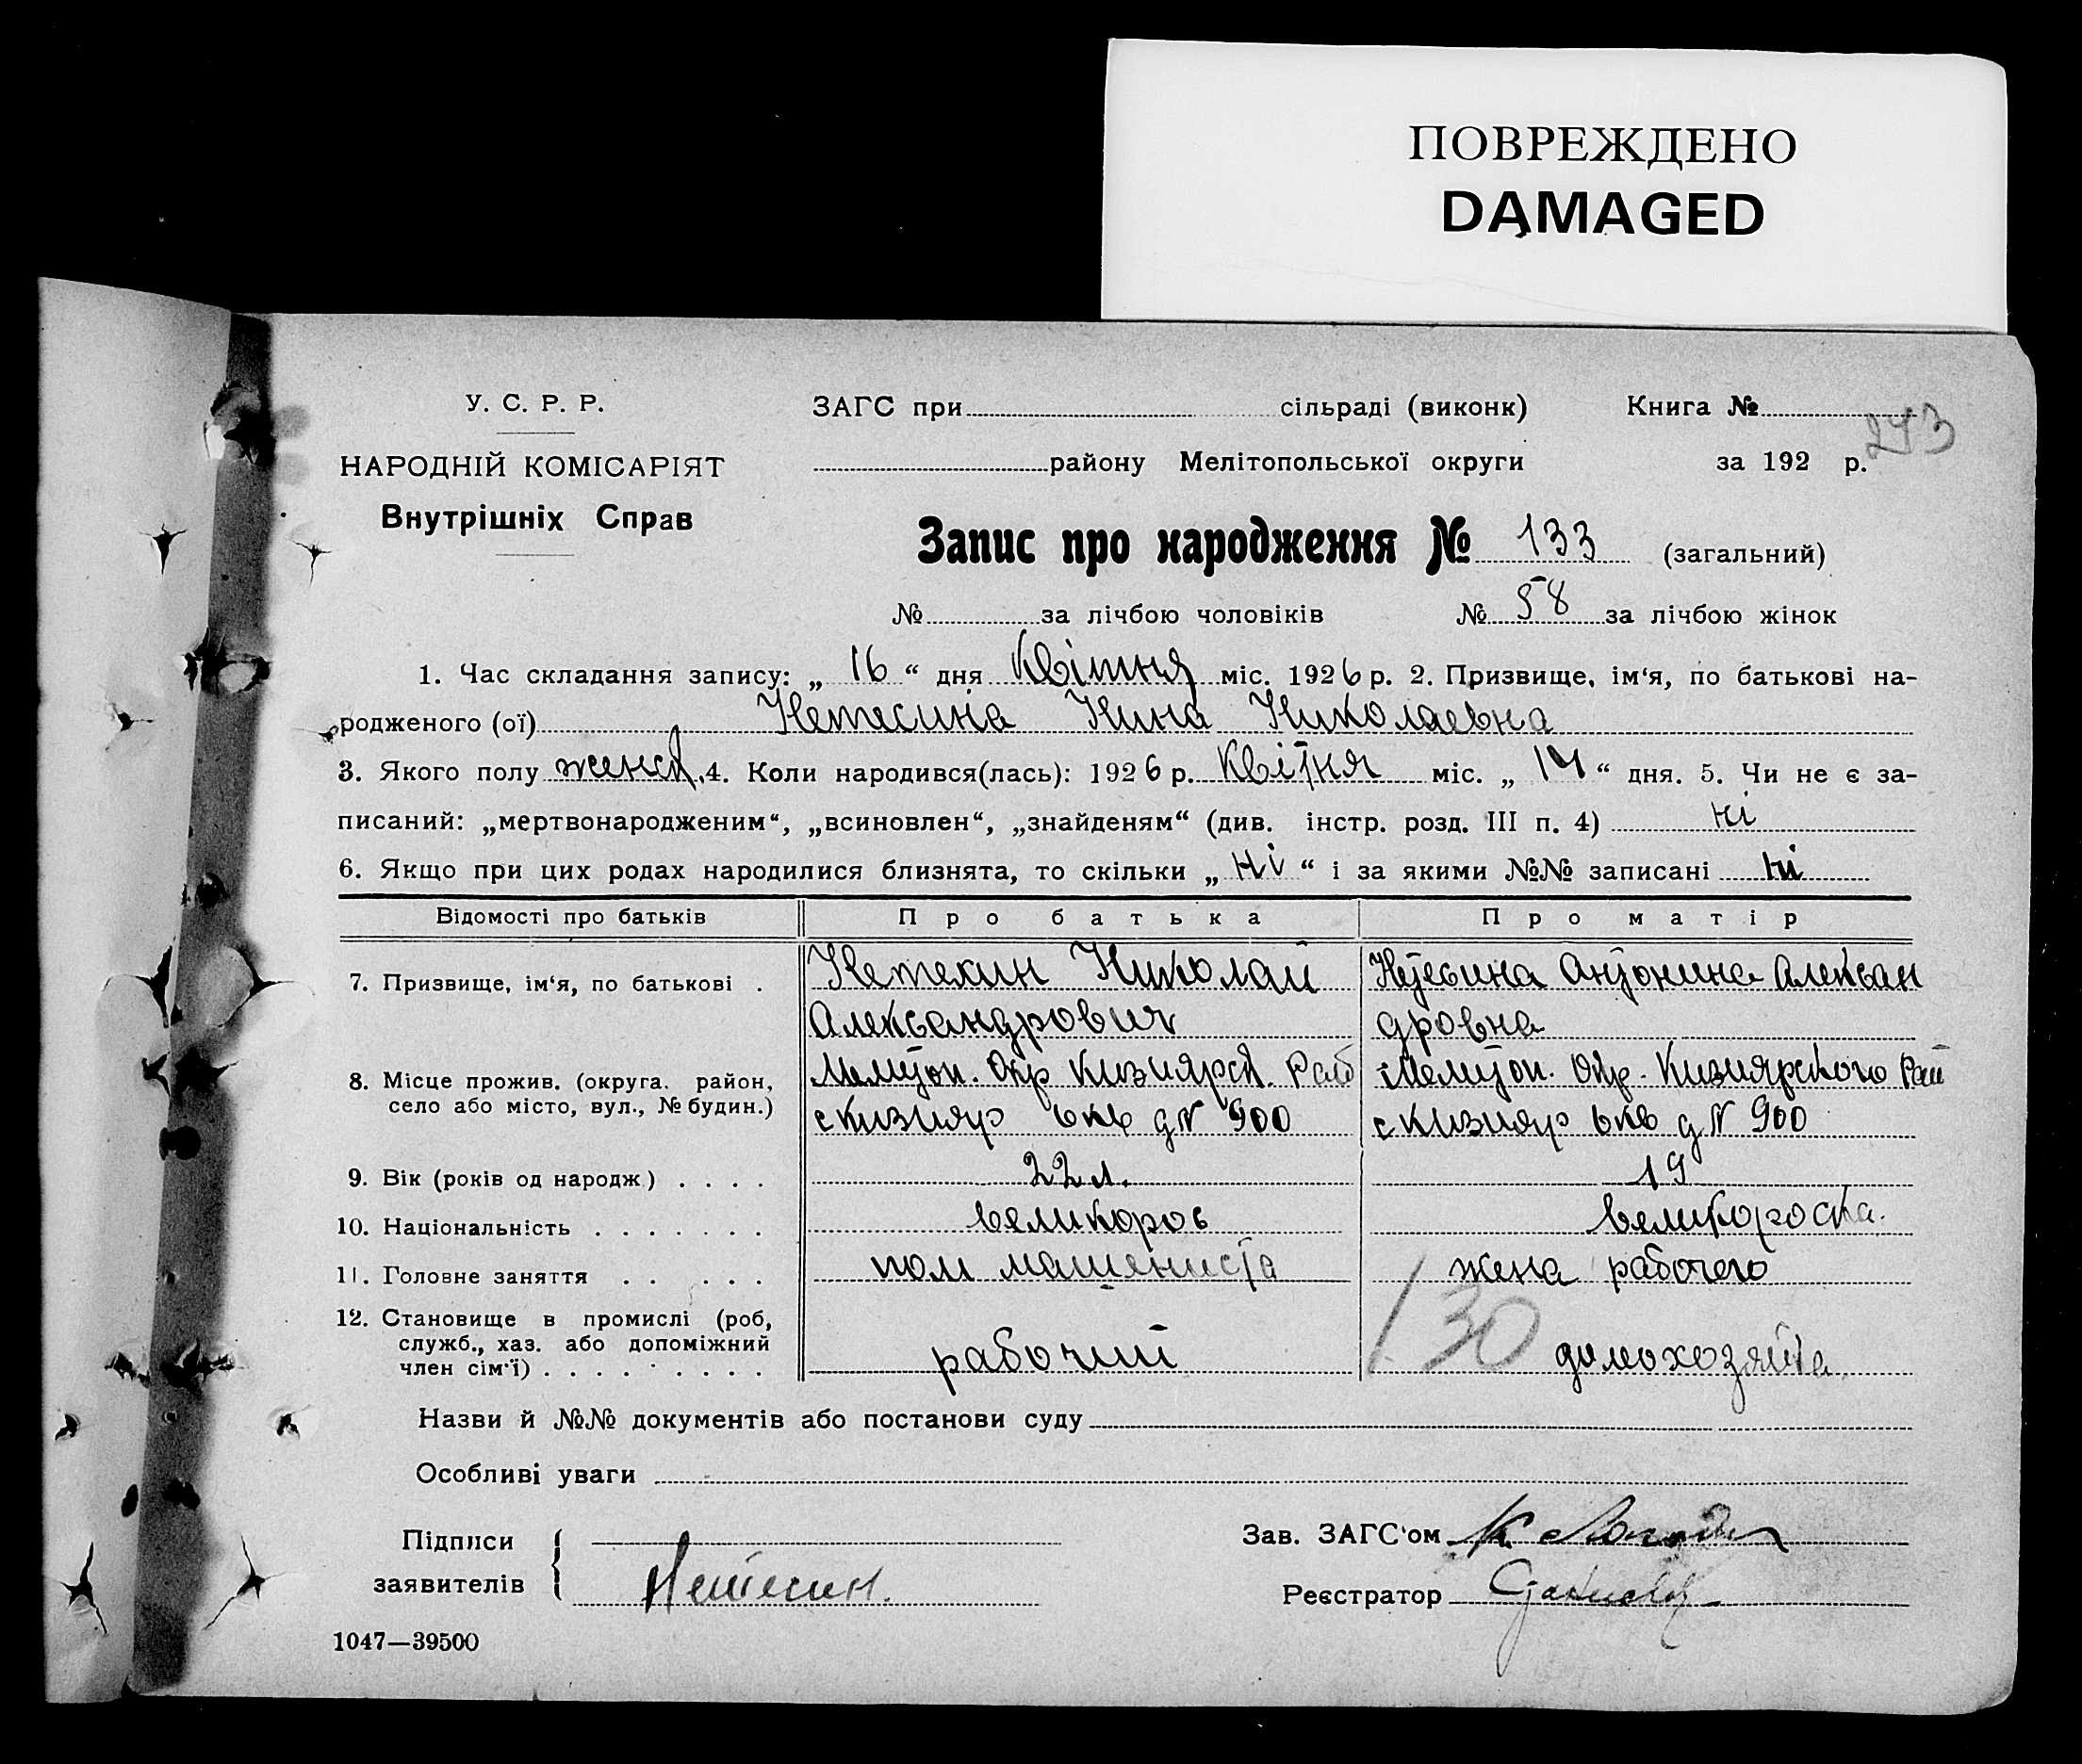 ПОВРЕЖДЕНО
DAMAGED
У. С. Р. Р.
НАРОДНІЙ КОМІСАРІЯТ
Внутрішніх Справ
ЗАГС при сільраді (виконк) Книга №
273
району Мелітопольської округи за 192 р.
Запис про народження № 133 (загальний)
№ за лічбою чоловіків № 58 за лічбою жінок
1. Час складання запису: „ 16 “ дня Квітня міс. 1926 р. 2. Призвище, ім‘я, по батькові на-
родженого (ої) Нетесина Нина Николаевна
3. Якого полу женск. 4. Коли народився(лась): 1926 р. Квітня міс. „ 14 “ дня. 5. Чи не є за-
писаний: „мертвонародженим“, „всиновлен“, „знайденям“ (див. інстр. розд. III п. 4) ні
6. Якщо при цих родах народилися близнята, то скільки „ ні “ і за якими №№ записані ні
Відомості про батьків Про батька Про матір
7. Призвище, ім‘я, по батькові . Нетесин Николай Нетесина Антонина Алексан
Александрович дровна
8. Місце прожив. (округа. район, Мелитоп. Окр Кизиярск. Рай Мелитоп. Окр. Кизиярского Рай
село або місто, вул., № будин.) с Кизияр 6 кв д N 900 с Кизияр 6 кв д N 900
9. Вік (років од народж.) . . . . 22 л. 19
10. Національність . . . . . . . великорос великороска.
11. Головне заняття . . . . . пом машениста жена рабочего
12. Становище в промислі (роб,
служб., хаз. або допоміжний
член сім‘ї) . . . . . . . . рабочий 130 домохозяйка
Назви й №№ документів або постанови суду
Особливі уваги
Підписи Зав. ЗАГС‘ом
заявителів Нетесин. Реєстратор
1047—39500